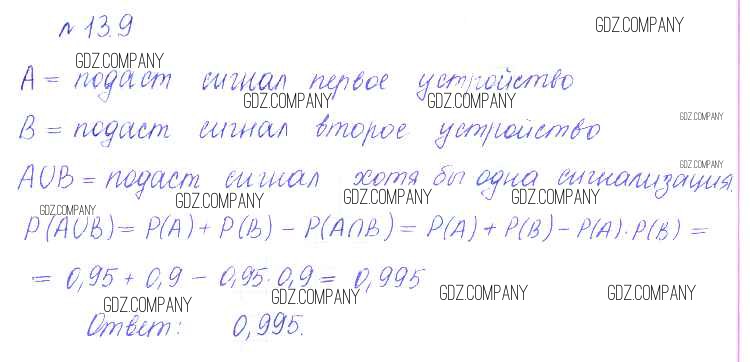 № 13.9
GDZ.COMPANY
GDZ.COMPANY
A = подаст сигнал первое устройство
GDZ.COMPANY GDZ.COMPANY
GDZ.COMPANY
B = подаст сигнал второе устройство
GDZ.COMPANY
A∪B = подаст сигнал хотя бы одна сигнализация.
GDZ.COMPANY GDZ.COMPANY GDZ.COMPANY GDZ.COMPANY
P(A∪B) = P(A) + P(B) − P(A∩B) = P(A) + P(B) − P(A)·P(B) =
= 0,95 + 0,9 − 0,95·0,9 = 0,995
GDZ.COMPANY GDZ.COMPANY GDZ.COMPANY GDZ.COMPANY
Ответ: 0,995.